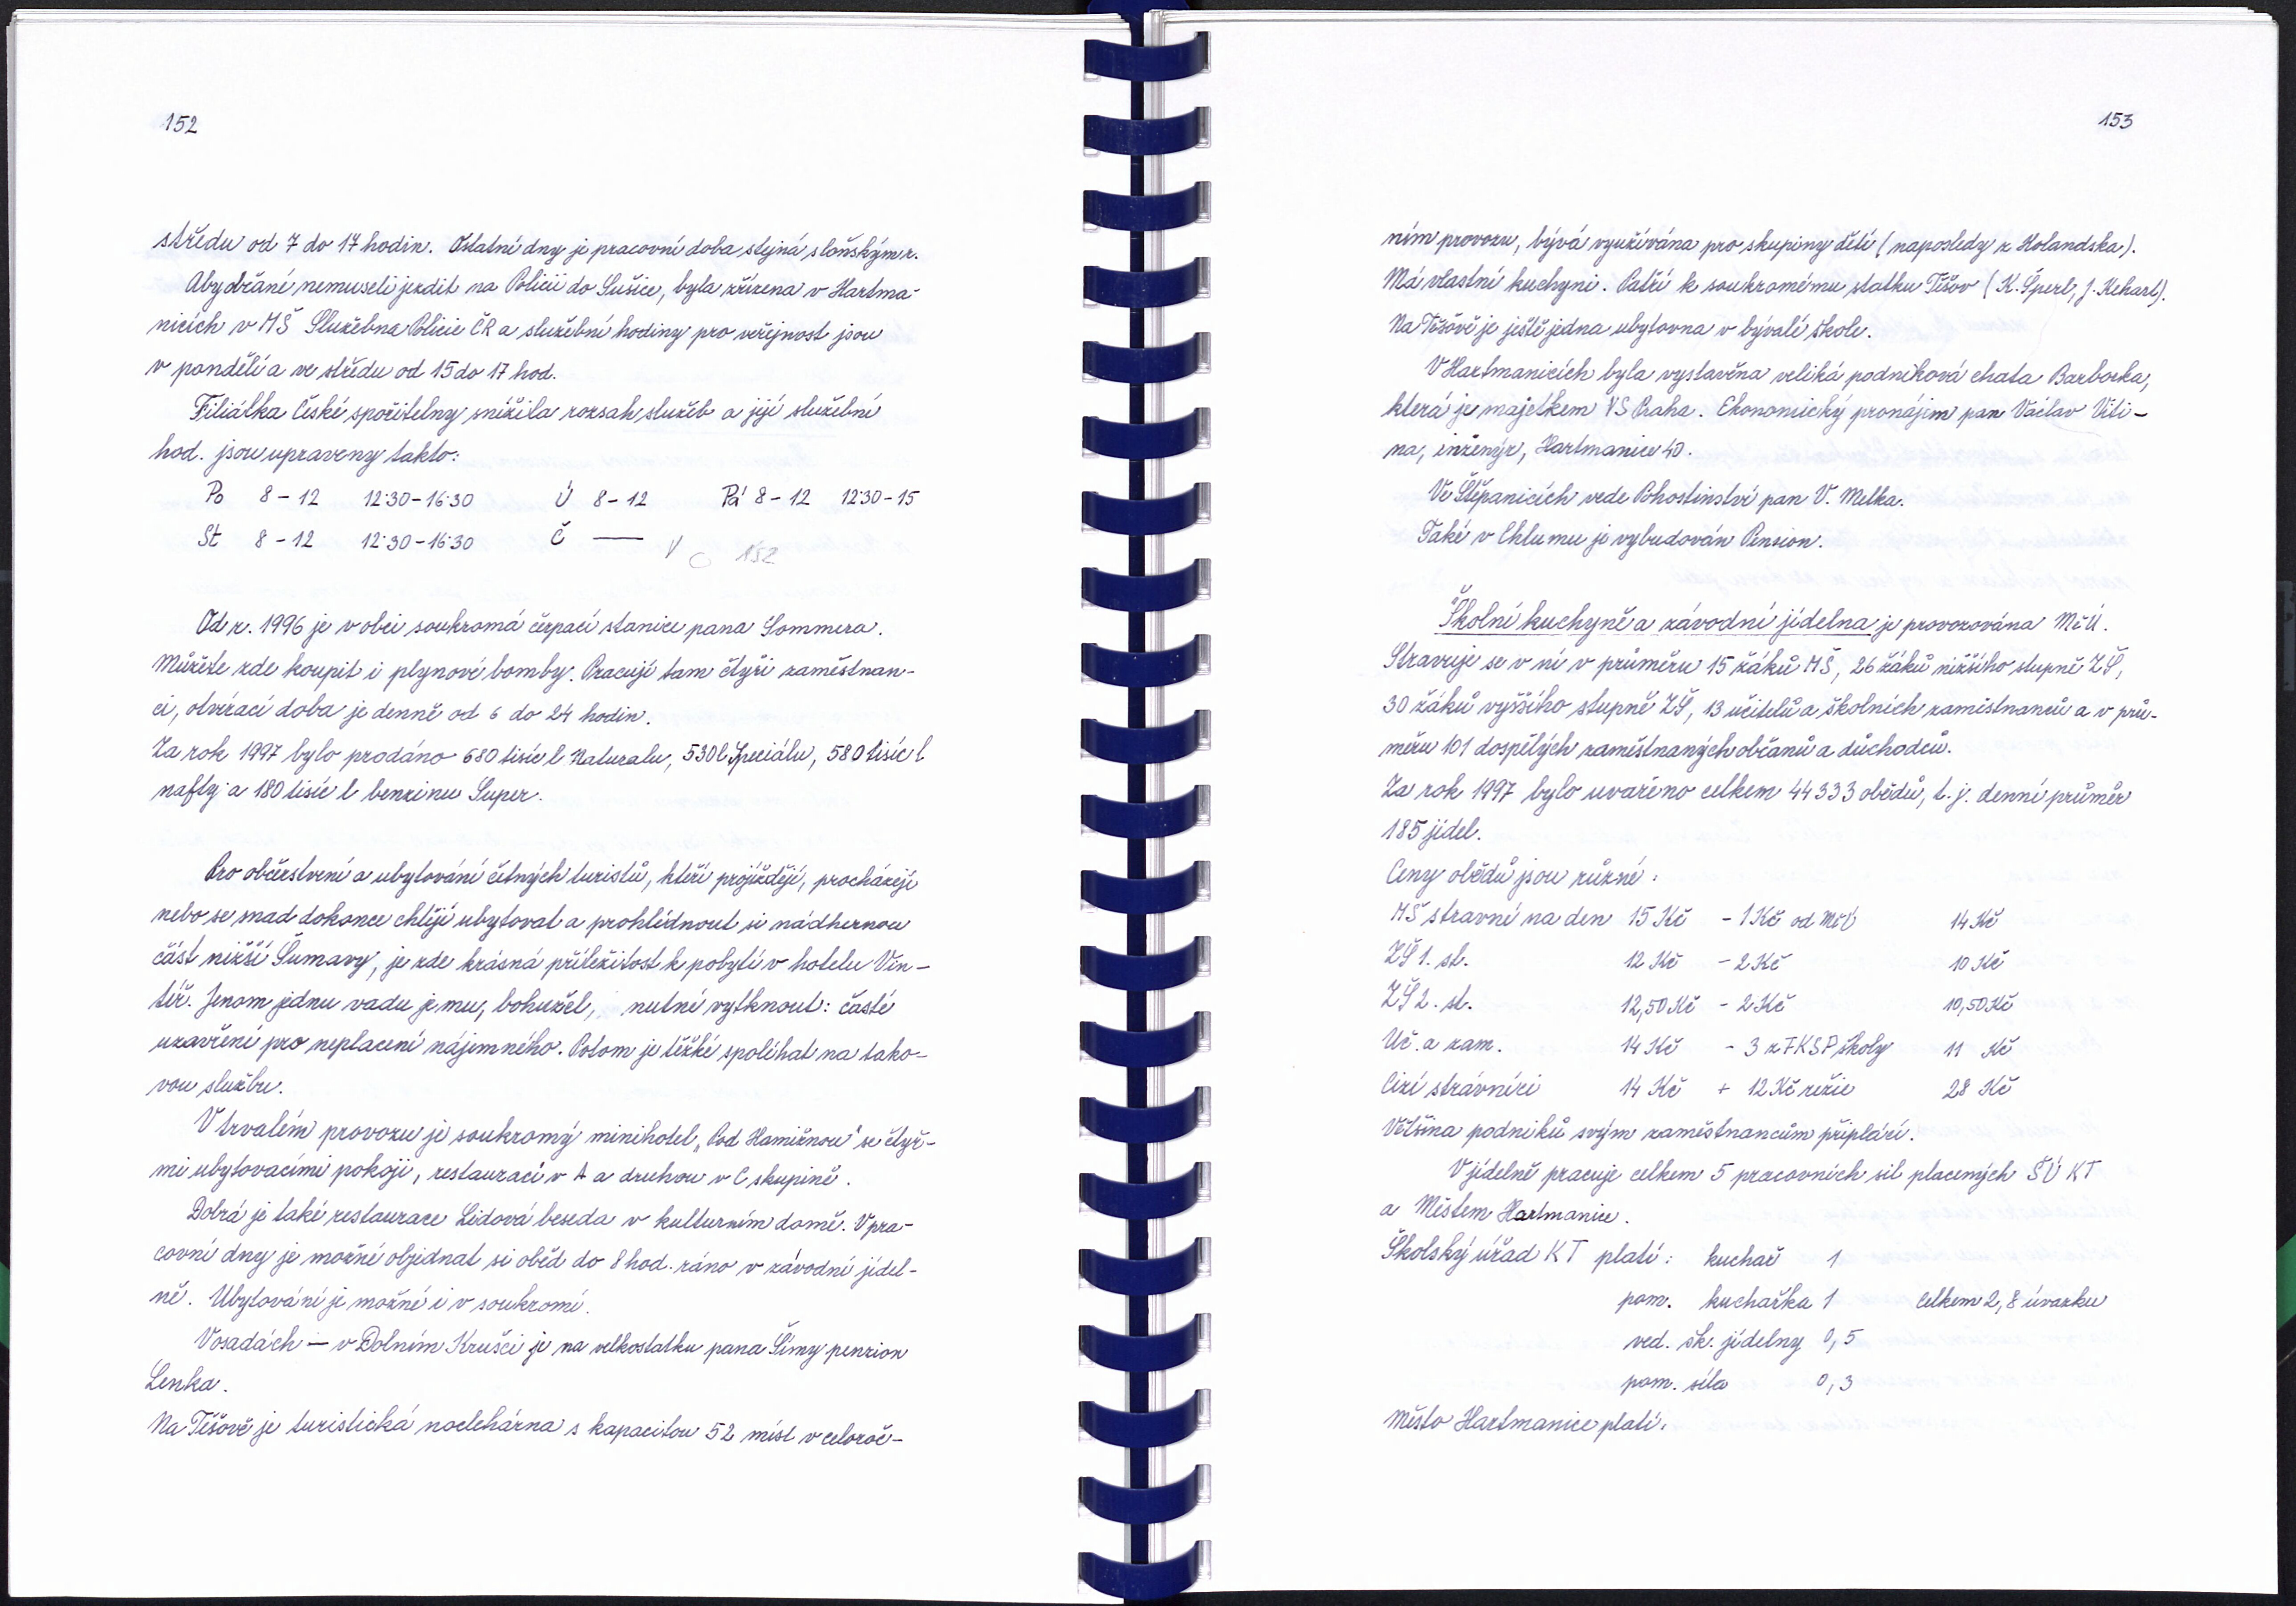 152
středu od 7 do 17 hodin. Ostatní dny je pracovní doba stejná s loňským r.
Aby občané nemuseli jezdit na Policii do Sušice, byla zřízena v Hartma-
nicích v MŠ Služebna Policie ČR a služební hodiny pro veřejnost jsou
v pondělí a ve středu od 15 do 17 hod.
Filiálka České spořitelny snížila rozsah služeb a její služební
hod. jsou upraveny takto:
Po 8 - 12 12:30 - 16:30 Ú 8 - 12 Pá 8 - 12 12:30 - 15
St 8 - 12 12:30 - 16:30 Č — 152
Od r. 1996 je v obci soukromá čerpací stanice pana Sommera.
Můžete zde koupit i plynové bomby. Pracují tam čtyři zaměstnan-
ci, otvírací doba je denně od 6 do 24 hodin.
Za rok 1997 bylo prodáno 680 tisíc l Naturalu, 530 l Speciálu, 580 tisíc l
nafty a 180 tisíc l benzinu Super.
Pro občerstvení a ubytování četných turistů, kteří projíždějí, procházejí
nebo se snad dokonce chtějí ubytovat a prohlédnout si nádhernou
část nižší Šumavy, je zde krásná příležitost k pobytí v hotelu Vin-
tíř. Jenom jednu vadu je mu, bohužel, nutné vytknout: časté
uzavření pro neplacení nájemného. Potom je těžké spoléhat na tako-
vou službu.
V trvalém provozu je soukromý minihotel „Pod Hamižnou" se čtyř-
mi ubytovacími pokoji, restaurací v A a druhou v C skupině.
Dobrá je také restaurace Lidová beseda v kulturním domě. V pra-
covní dny je možné objednat si oběd do 8 hod. ráno v závodní jídel-
ně. Ubytování je možné i v soukromí.
V osadách — v Dolním Krušci je na velkostatku pana Šímy penzion
Lenka.
Na Těšově je turistická noclehárna s kapacitou 52 míst v celoroč-
153
ním provozu, bývá využívána pro skupiny dětí (naposledy z Holandska).
Má vlastní kuchyni. Patří k soukromému statku Těšov (K. Šperl, J. Kehart).
Na Těšově je ještě jedna ubytovna v bývalé škole.
V Hartmanicích byla vystavěna veliká podniková chata Barborka,
která je majetkem VS Praha. Ekonomický pronájem pan Václav Viti-
na, inženýr, Hartmanice 40.
Ve Štěpanicích vede Pohostinství pan V. Melka.
Také v Chlumu je vybudován Pension.
Školní kuchyně a závodní jídelna je provozována MěÚ.
Stravuje se v ní v průměru 15 žáků MŠ, 26 žáků nižšího stupně ZŠ,
30 žáků vyššího stupně ZŠ, 13 učitelů a školních zaměstnanců a v prů-
měru 101 dospělých zaměstnaných občanů a důchodců.
Za rok 1997 bylo uvařeno celkem 44 333 obědů, t. j. denní průměr
185 jídel.
Ceny obědů jsou různé:
MŠ stravní na den 15 Kč - 1 Kč od MěÚ 14 Kč
ZŠ 1. st. 12 Kč - 2 Kč 10 Kč
ZŠ 2. st. 12,50 Kč - 2 Kč 10,50 Kč
Uč. a zam. 14 Kč - 3 z FKSP školy 11 Kč
Cizí strávníci 14 Kč + 12 Kč režie 28 Kč
Většina podniků svým zaměstnancům připlácí.
V jídelně pracuje celkem 5 pracovních sil placených ŠÚ KT
a Městem Hartmanice.
Školský úřad KT platí: kuchař 1
pom. kuchařka 1 celkem 2,8 úvazku
ved. šk. jídelny 0,5
pom. síla 0,3
Město Hartmanice platí: